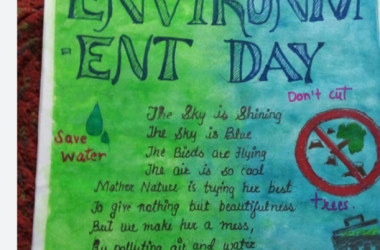 ENVIRONM
-ENT DAY
Don't cut
trees.
Save
Water
The Sky is Shining
The Sky is Blue
The Birds are flying
The air is so cool
Mother Nature is trying her best
To give nothing but beautifulness
But we make her a mess,
By polluting air and water